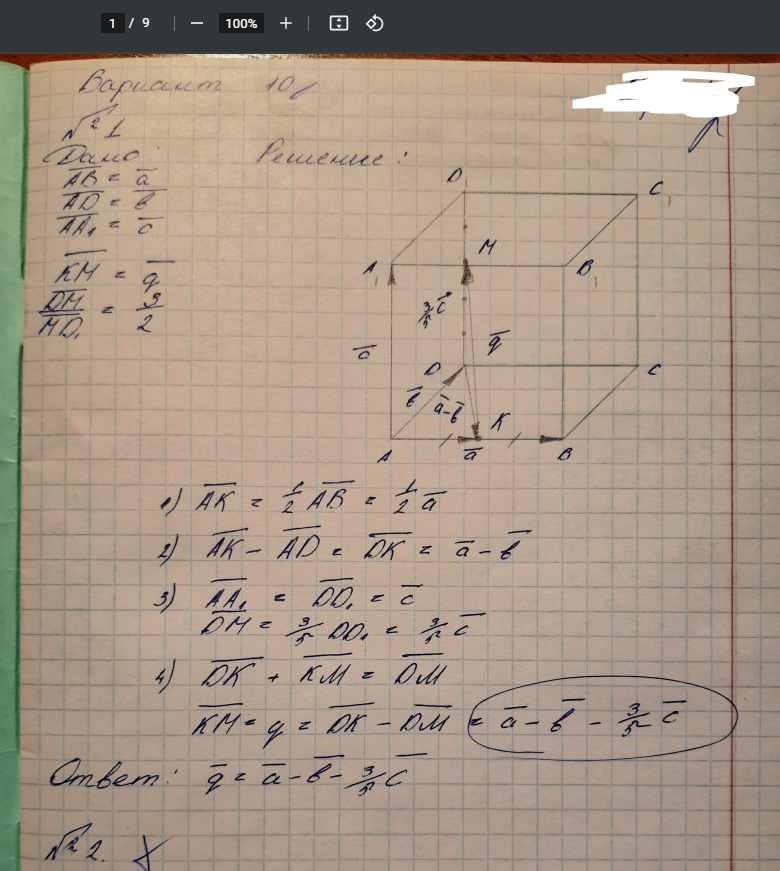 1 / 9
100%
Вариант 10
№1
Дано: Решение:
AB = a
AD = b
AA₁ = c
KM = q
DM/MD₁ = 3/2
D₁ C₁
M
A₁ B₁
3/5 c
q
c
D C
b a-b
K
A a B
1) AK = 1/2 AB = 1/2 a
2) AK - AD = DK = a - b
3) AA₁ = DD₁ = c
DM = 3/5 DD₁ = 3/5 c
4) DK + KM = DM
KM = q = DK - DM = a - b - 3/5 c
Ответ: q = a - b - 3/5 c
№2.